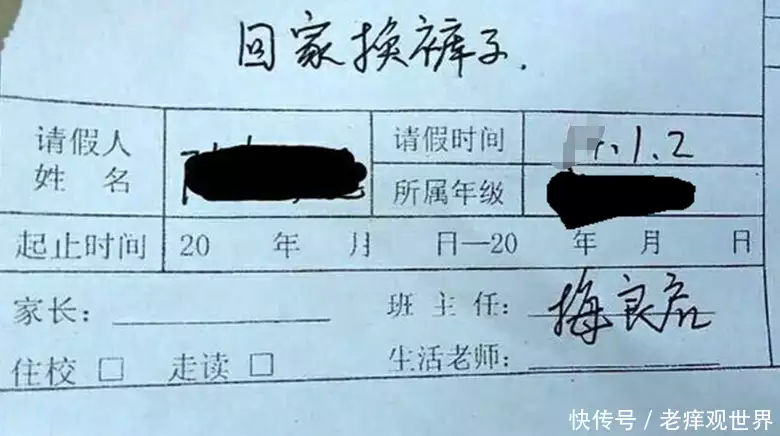 回家换裤子.
请假人姓名
请假时间 .1.2
所属年级
起止时间 20 年 月 日—20 年 月 日
家长: 班主任: 梅良启
住校 □ 走读 □ 生活老师:
快传号/老痒观世界